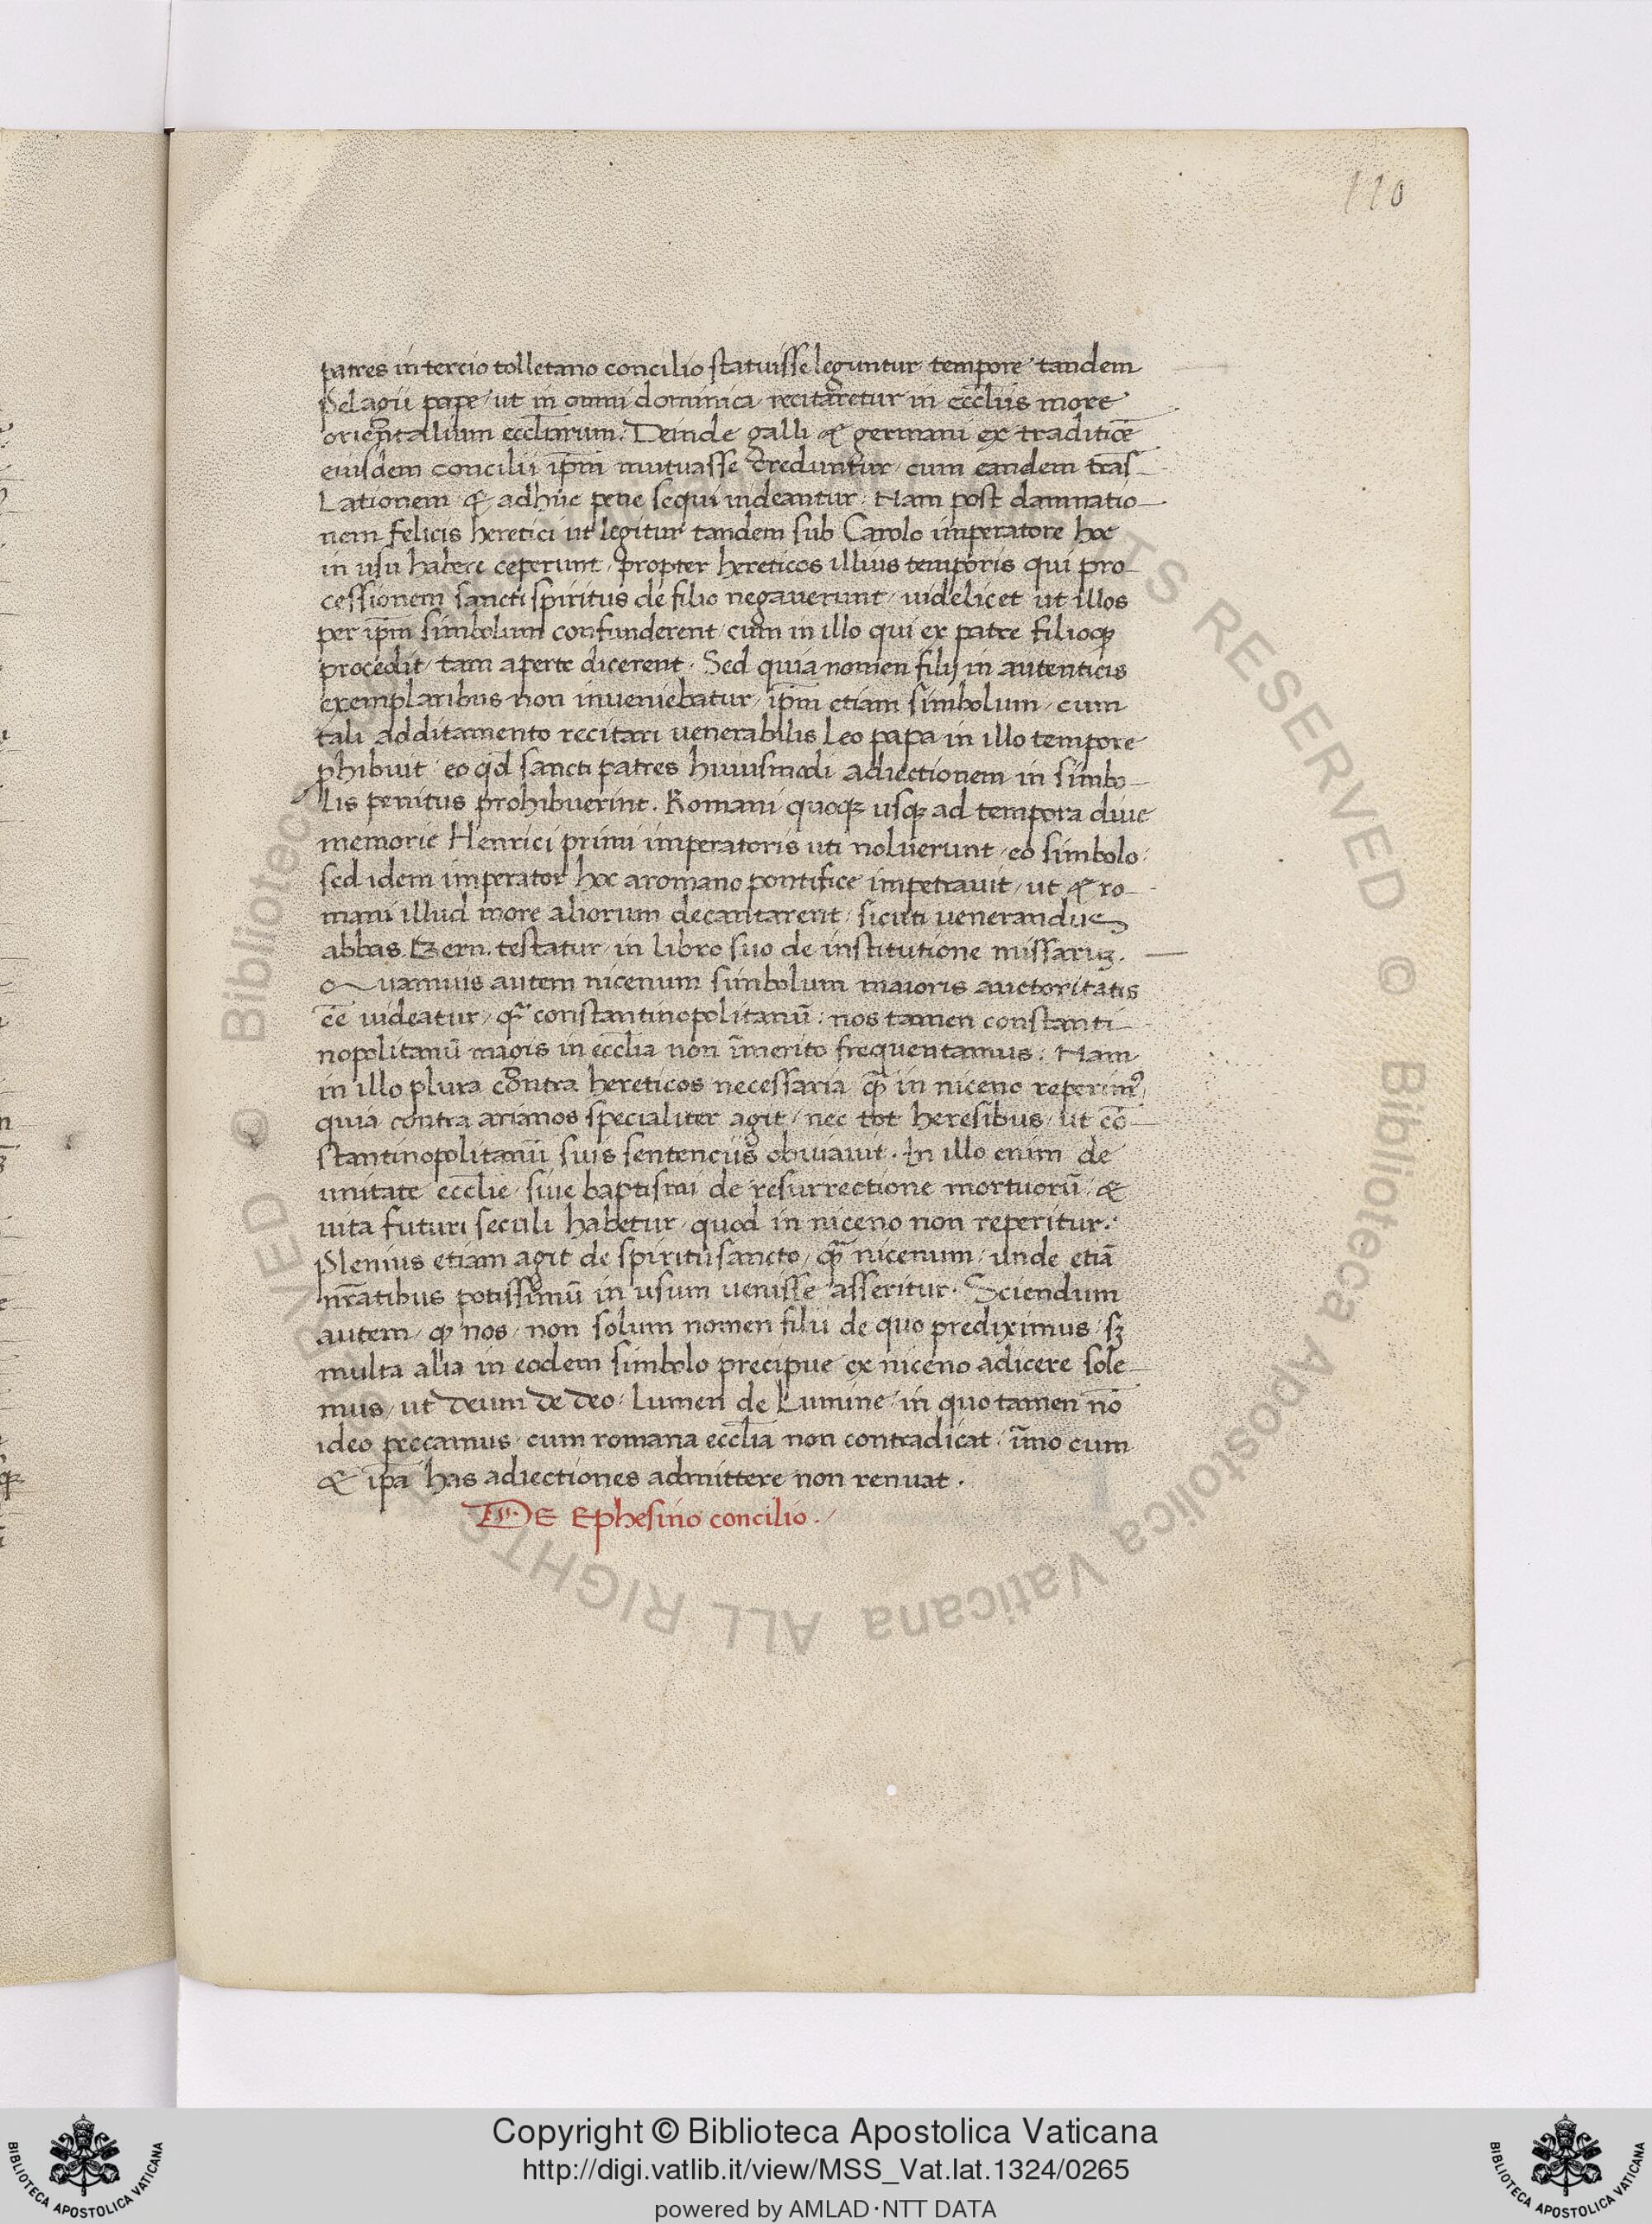 110
patres in tercio tolletano concilio statuisse leguntur tempore tandem
Pelagii pape ut in omni dominica recitaretur in eccl̄iis more
orientalium eccl̄iarum. Deinde galli & germani ex traditiōe
eiusdem concilii ip̄m mutuasse creduntur cum eandem trās
Lationem & adhuc pene sequi uideantur. Nam post damnatio
nem felicis heretici ut legitur tandem sub Carolo imperatore hoc
in usu habere ceperunt, propter hereticos illius temporis qui pro
cessionem sancti spiritus de filio negauerunt, uidelicet ut illos
per ip̄m simbolum confunderent cum in illo qui ex patre filioqꝫ
procedit, tam aperte dicerent. Sed quia nomen filij in autenticis
exemplaribus non inueniebatur, ip̄m etiam simbolum, cum
tali additamento recitari uenerabilis Leo papa in illo tempore
ꝓhibuit eo qd̄ sancti patres huiusmodi adiectionem in simbo
Lis penitus prohibuerint. Romani quoqꝫ usqꝫ ad tempora diue
memorie Henrici primi imperatoris uti noluerunt eo simbolo:
sed idem imperator hoc a romano pontifice impetrauit, ut & ro
mani illud more aliorum decantarent, sicuti uenerandus
abbas Bern. testatur, in libro suo de institutione missaruꝫ.
Quamuis autem nicenum simbolum maioris auctoritatis
ēē uideatur, qᷓ constantinopolitanū: nos tamen constanti
nopolitanū magis in eccl̄ia non īmerito frequentamus. Nam
in illo plura contra hereticos necessaria qᷓ in niceno reperimꝰ,
quia contra arianos specialiter agit, nec tot heresibus, ut cō
stantinopolitanū suis sentenciis obuiauit. In illo enim de
unitate eccl̄ie siue baptismi de resurrectione mortuorū, &
uita futuri seculi habetur, quod in niceno non reperitur.
Plenius etiam agit de spiritu sancto, qᷓ nicenum, unde etiā
nr̄atibus potissimū in usum uenisse asseritur. Sciendum
autem, ꝙ nos, non solum nomen filii de quo prediximus, sꝫ
multa alia in eodem simbolo precipue ex niceno adicere sole
mus, ut deum de deo, Lumen de Lumine, in quo tamen nō
ideo peccamus, cum romana eccl̄ia non contradicat, īmo cum
& ip̄a has adiectiones admittere non renuat.
DE Ephesino concilio.
© Biblioteca Apostolica Vaticana ALL RIGHTS RESERVED
Copyright © Biblioteca Apostolica Vaticana
http://digi.vatlib.it/view/MSS_Vat.lat.1324/0265
powered by AMLAD·NTT DATA
BIBLIOTECA APOSTOLICA VATICANA
BIBLIOTECA APOSTOLICA VATICANA